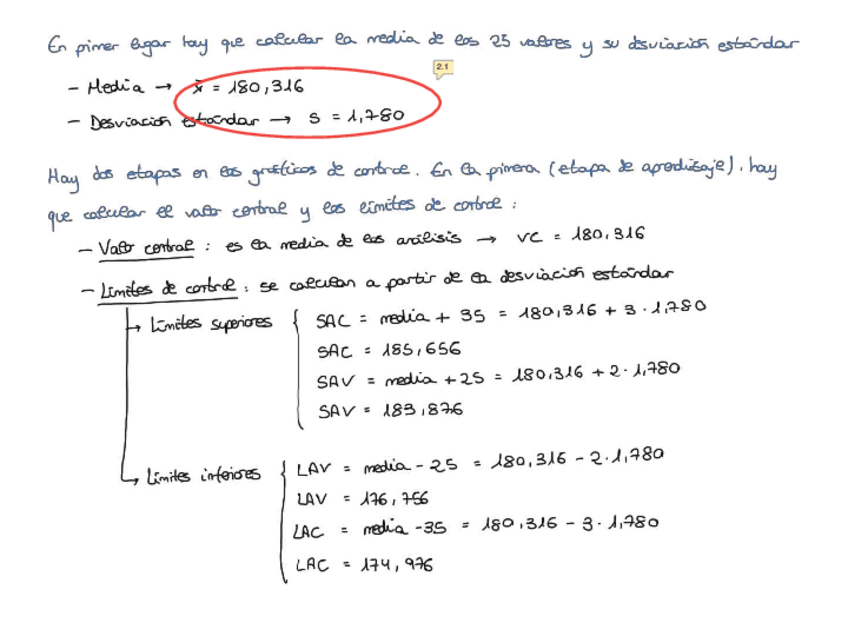 En primer lugar hay que calcular la media de los 25 valores y su desviación estándar
2.1
- Media → x̄ = 180,316
- Desviación estándar → s = 1,780
Hay dos etapas en los gráficos de control. En la primera (etapa de aprendizaje), hay
que calcular el valor central y los límites de control :
- Valor central : es la media de los análisis → VC = 180,316
- Límites de control : se calculan a partir de la desviación estándar
→ Límites superiores { SAC = media + 3S = 180,316 + 3 · 1,780
SAC = 185,656
SAV = media + 2S = 180,316 + 2 · 1,780
SAV = 183,876
→ Límites inferiores { LAV = media - 2S = 180,316 - 2 · 1,780
LAV = 176,756
LAC = media - 3S = 180,316 - 3 · 1,780
LAC = 174,976